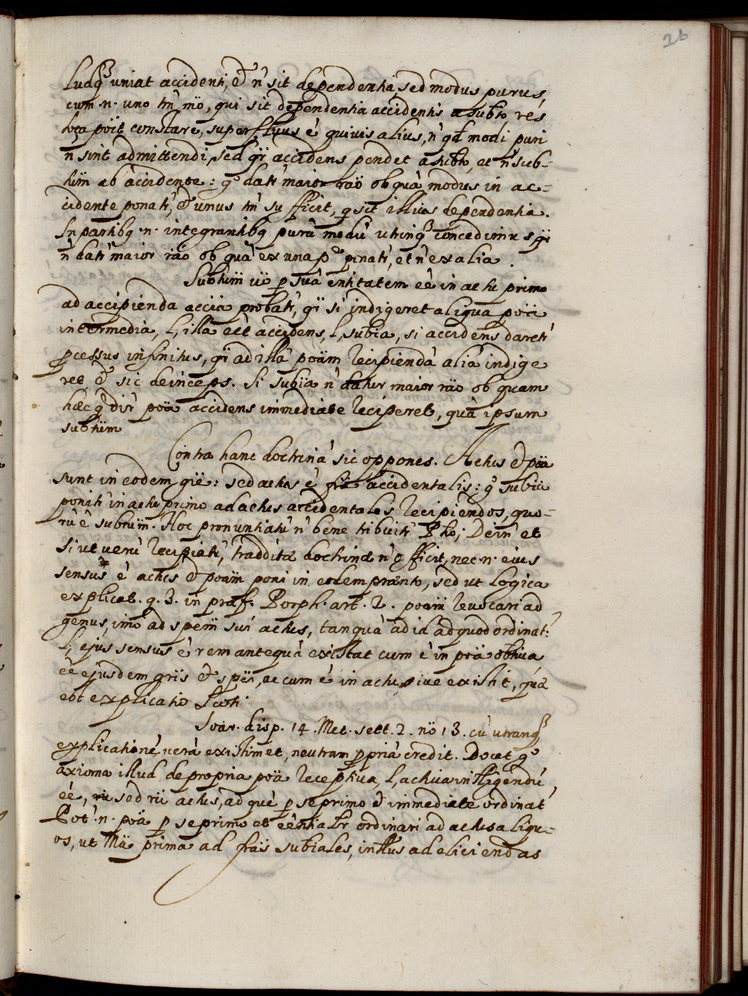 26
uniat accidenti, & n̄ sit dependentia, sed modus purus,
cum n. uno tm̄ mō, qui sit dependentia accidentis a subto, res
tota poīt constare, superfluus ē quivis alius, n̄ qd modi puri
n̄ sint admittendi, sed qī accidens pendet a subto, et n̄ sub-
tum ab accidente: g° dati maior rāō ob quā modus in ac-
cidente ponati, & unus tm̄ sufficit, q sit illius dependentia.
In partibq n. integrantibq purū modū utrinq concedimus qī
n̄ dati maior rāō ob quā ex una p° pinati, et n̄ ex alia.
Subtum uō p suā entitatem eē in actu primo
ad accipienda accīa probati, qī si indigeret aliqua poā
intermedia, l, illa eēt accidens, l, subīa, si accidens dareti
pcessus infinitus, qī ad illā poām recipiendā aliā indige
ret & sic deinceps. Si subīa n̄ datur maior rāō ob quam
hæc poā accidens immediate reciperet, quā ipsum
subtum
Contra hanc doctrinā sic oppones. Actus & poā
sunt in eodem gūe: sed actus ē accidentalis: g° subīa
poniti in actu primo ad actus accidentales recipiendos, quo-
rū ē subtum. Hoc pronuntiatū n̄ bene tribuiti Pho; Dein et
si ut verū recipiati, traddita doctrina n̄ officit, nec n. eius
sensus ē actus & poām poni in eodem prænto, sed ut Logica
explicat. q. 3. in præf. Porph. art. 2. poām revocari ad
genus, imō ad spem sui actus, tanquā ad id ad quod ordinat:
l, ejus sensus ē rem antequā existat cum ē in poā obtiva
eē ejusdem grīs & spēi, ac cum ē in actu, sive existit, quæ
est explicatio Scoti.
Soar. disp. 14. Met. sett. 2. nō 13. cū utranq
explicationē verā existimet, neutram ppriā credit. Docet g°
axioma illud de propria poā receptiva, l, activa intelligendū
eē, sed actus, ad quē p se primo & immediate ordinat
Pot. n. poā p se primo et eēntialr ordinari ad actus aliqu-
os, ut Mā prima ad frās subīales, intttus ad eliciendas